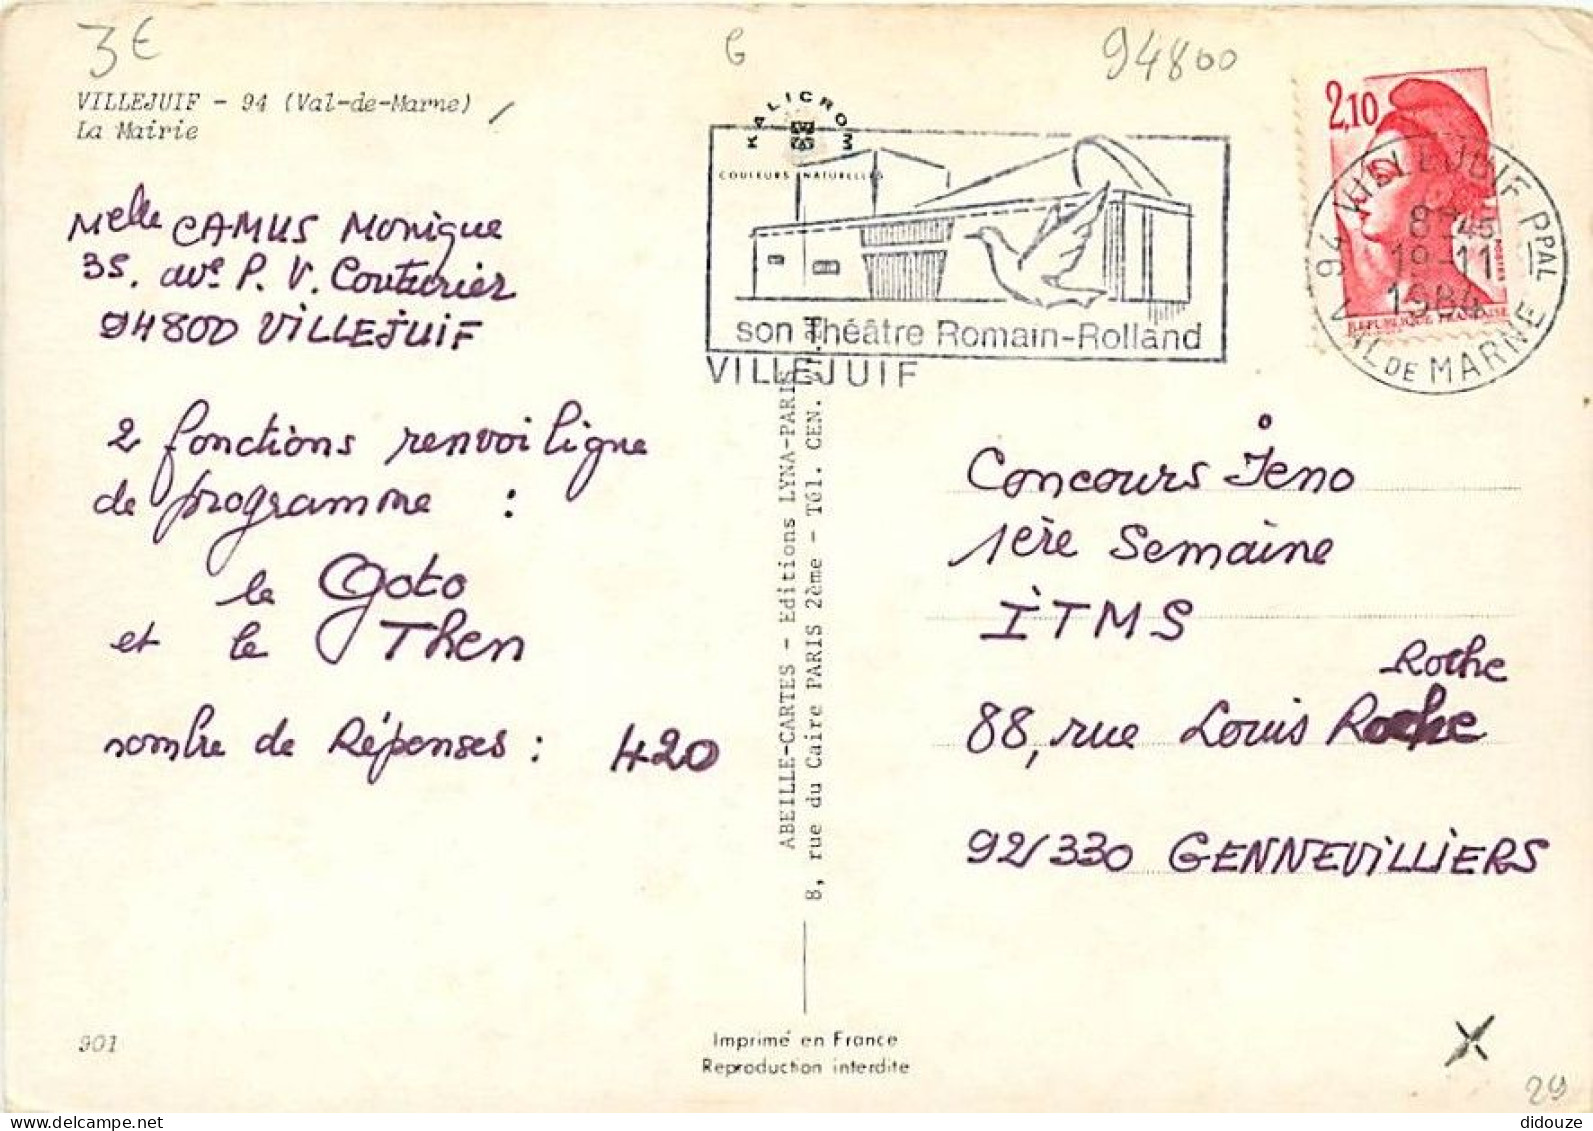 3€
G
94800
VILLEJUIF - 94 (Val-de-Marne)
La Mairie
KALICROM
COULEURS NATURELLES
son Théâtre Romain-Rolland
VILLEJUIF
2,10
POSTES
REPUBLIQUE FRANÇAISE
94 VILLEJUIF PPAL
8H45
19-11
1984
VAL DE MARNE
Melle CAMUS Monique
35. ave P. V. Couturier
94800 VILLEJUIF
2 fonctions renvoi ligne
de programme :
le Goto
et le Then
nombre de Réponses : 420
ABEILLE-CARTES - Editions LYNA-PARIS
8, rue du Caire PARIS 2ème - Tél. CEN.
Concours Jeno
1ère Semaine
ITMS
Roche
88, rue Louis Roche
92/330 GENNEVILLIERS
901
Imprimé en France
Reproduction interdite
29
didouze